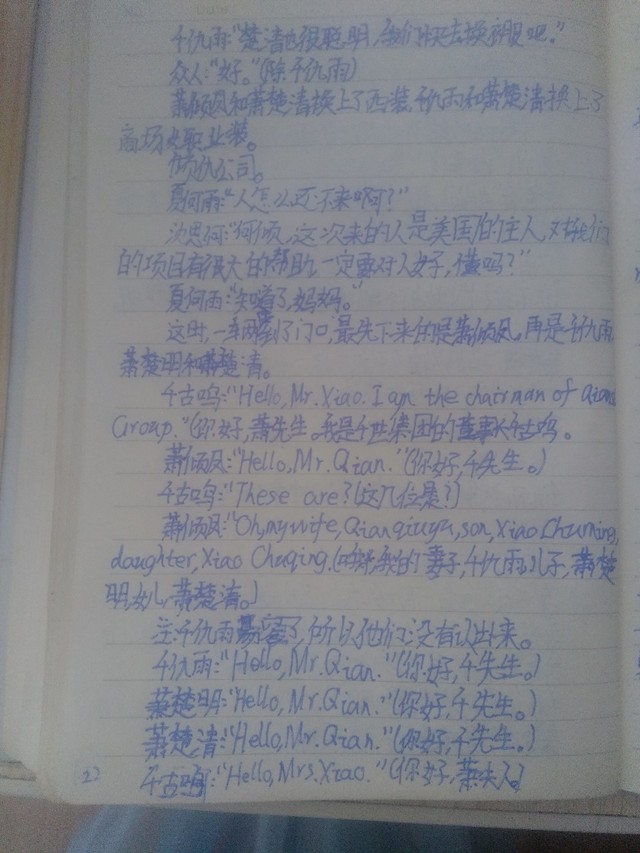 千仇雨:"楚清也很聪明,我们快去换衣服吧。"
众人:"好。"(除千仇雨)
萧倾凤和萧楚清换上了西装,千仇雨和萧楚清换上了
商场女职业装。
倾仇公司。
夏何雨:"人怎么还不来啊?"
沙思何:"何倾,这次来的人是美国的主人,对我们
的项目有很大的帮助,一定要对人好,懂吗?"
夏何雨:"知道了,妈妈。"
这时,一车到了门口,最先下来的是萧倾凤,再是千仇雨,
萧楚明和萧楚清。
千古鸣:"Hello, Mr. Xiao. I am the chairman of Qian
Group."(你好,萧先生。我是千世集团的董事长千古鸣。
萧倾凤:"Hello, Mr. Qian."(你好,千先生。)
千古鸣:"These are?(这几位是?)
萧倾凤:"Oh, my wife, Qianqiuyu, son, Xiao Chuming,
daughter, Xiao Chuqing.(哦,我的妻子,千仇雨,儿子,萧楚
明,女儿,萧楚清。)
注:千仇雨易容了,所以他们没有认出来。
千仇雨:"Hello, Mr. Qian."(你好,千先生。)
萧楚明:"Hello, Mr. Qian."(你好,千先生。)
萧楚清:"Hello, Mr. Qian."(你好,千先生。)
千古鸣:"Hello, Mrs. Xiao."(你好,萧夫人。)